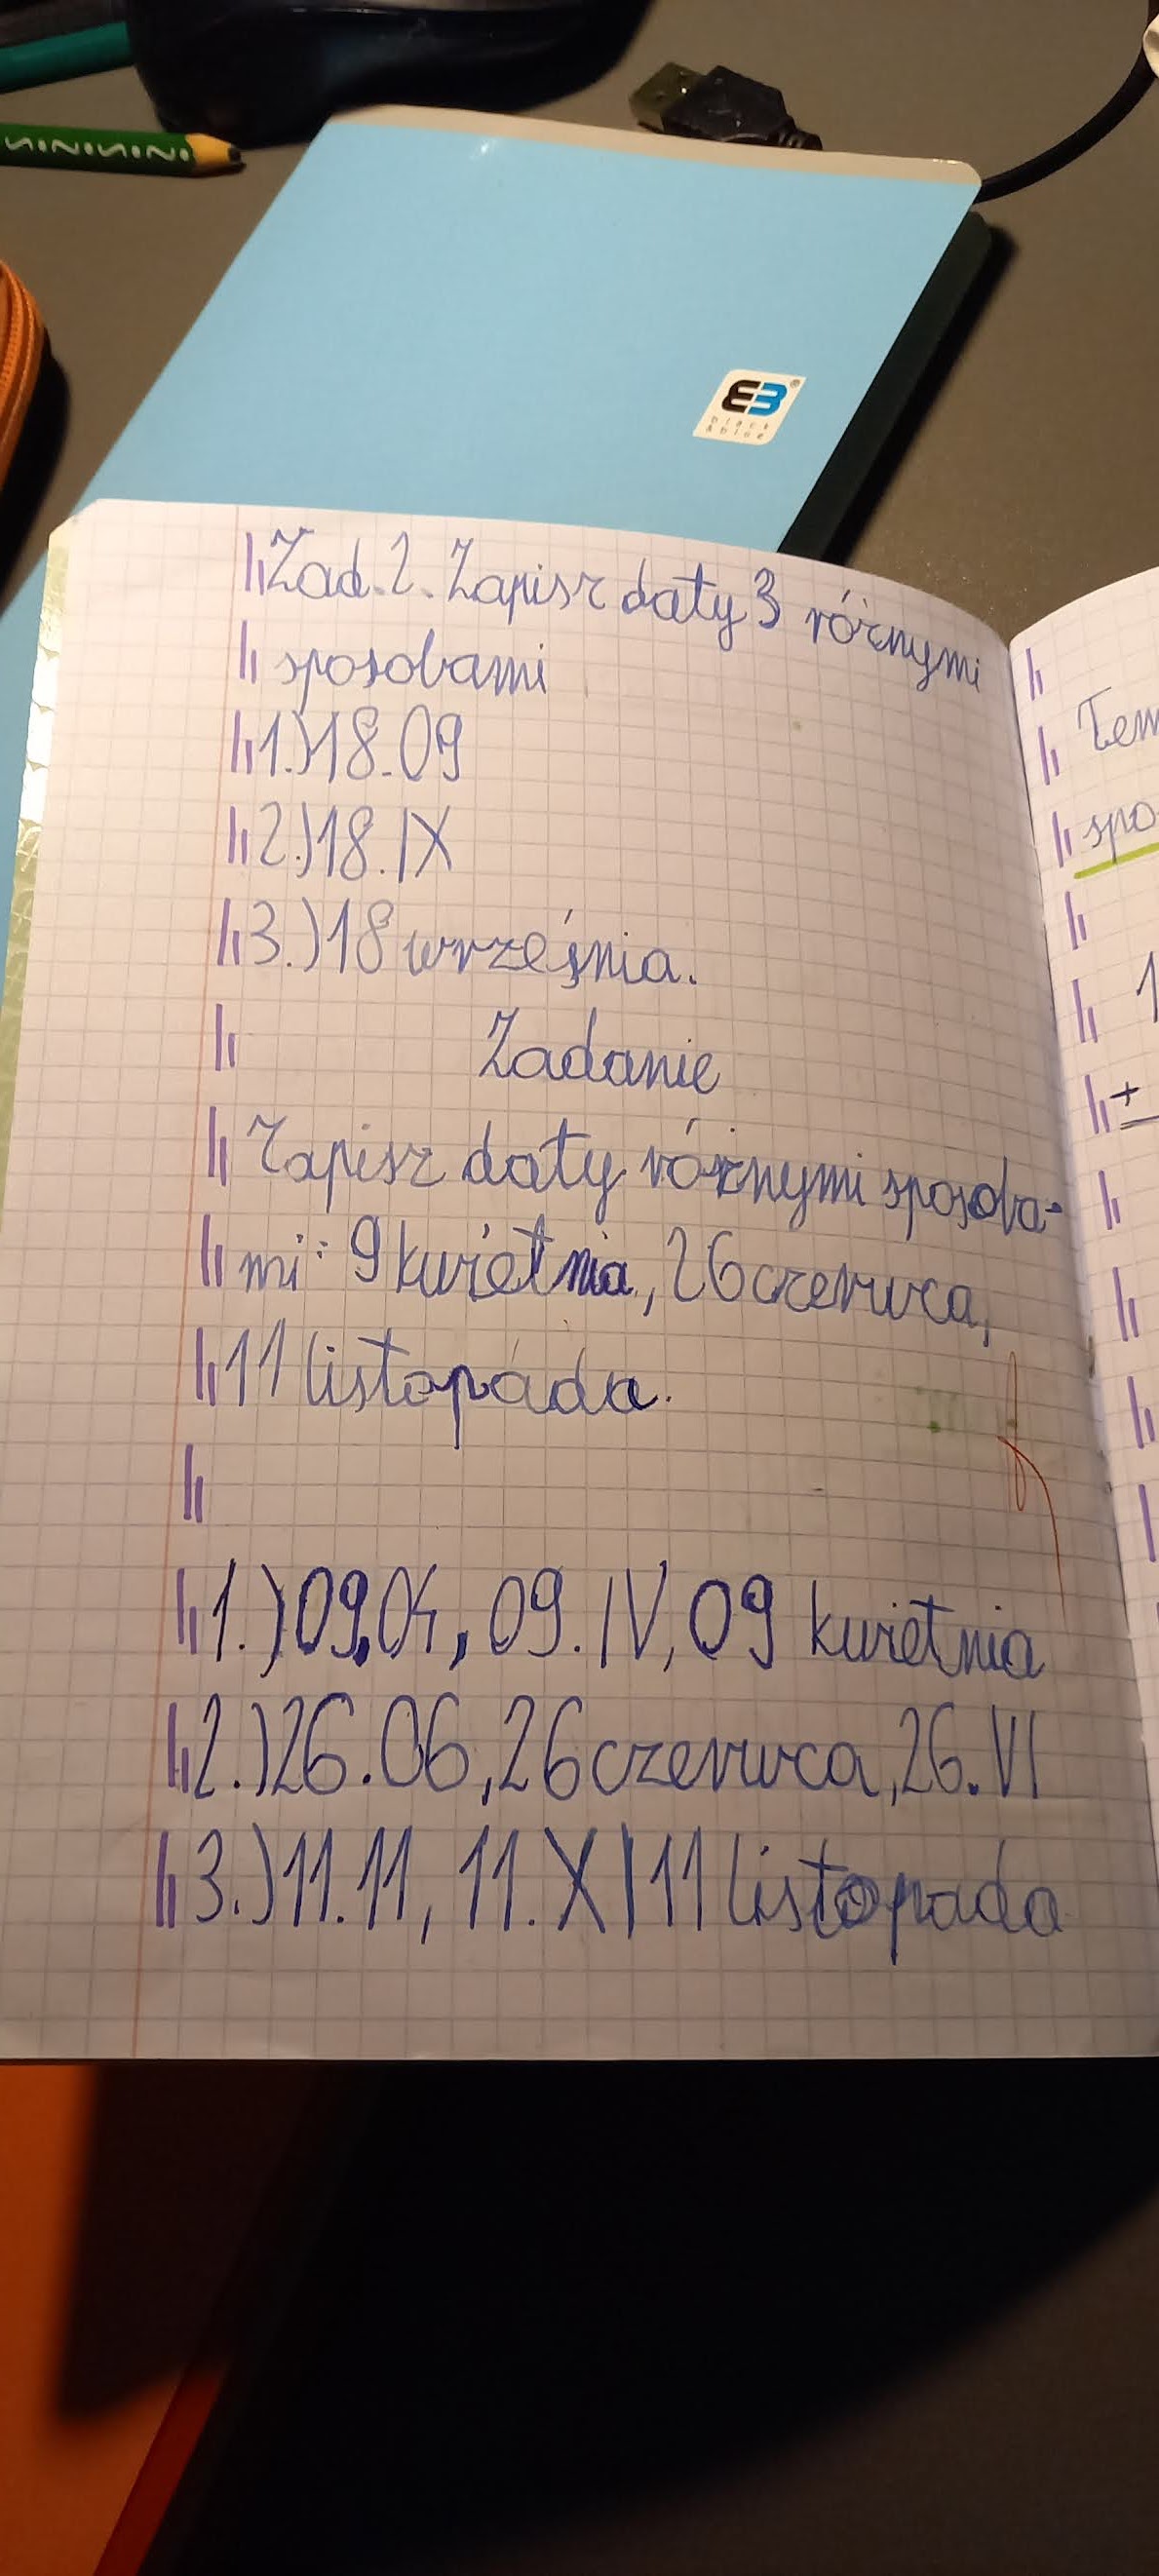 Zad.2. Zapisz daty 3 różnymi
sposobami
1.)18.09
2.)18.IX
3.)18 września.
Zadanie
Zapisz daty różnymi sposoba-
mi: 9 kwietnia, 26 czerwca,
11 listopada.
1.)09.04, 09.IV, 09 kwietnia
2.)26.06, 26 czerwca, 26.VI
3.)11.11, 11.XI 11 listopada
Tem
spo
1
+
black
&blue